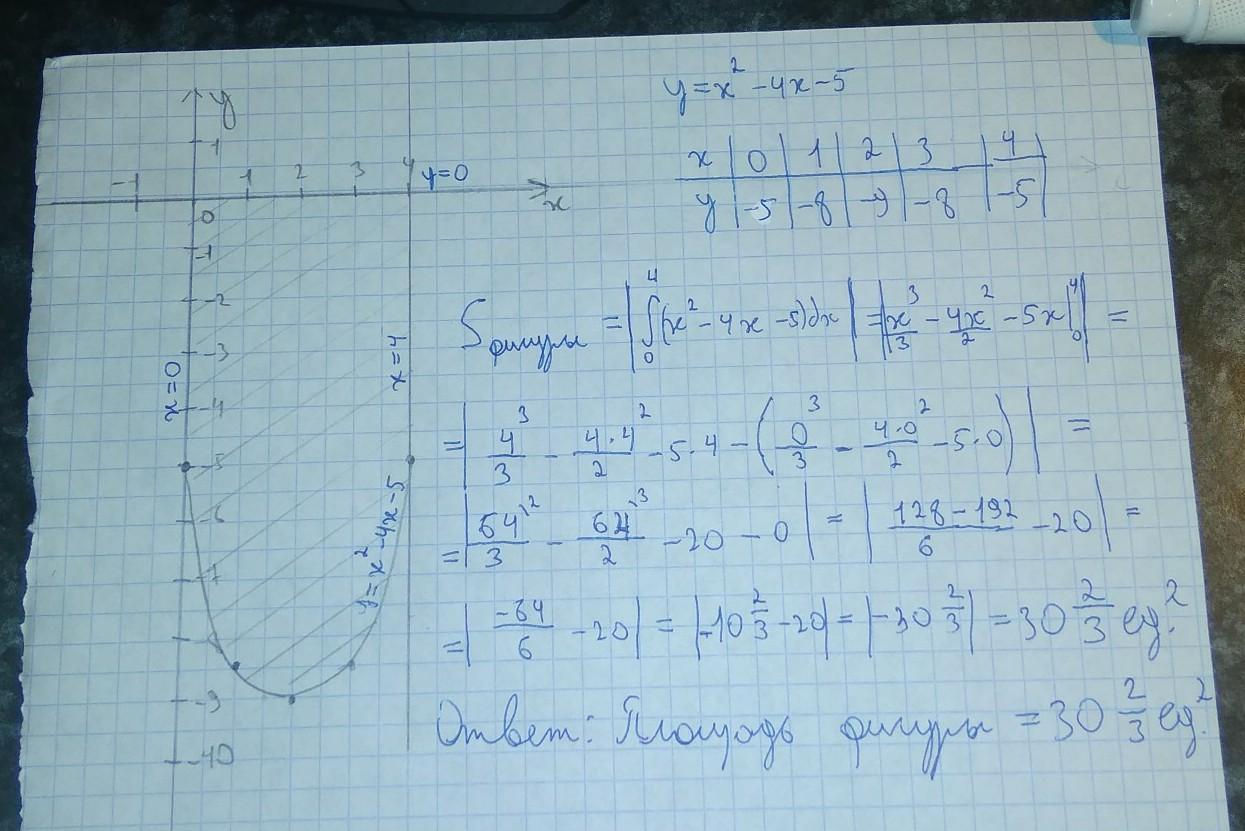 y
1
-1 1 2 3 4 y=0
x
0
-1
-2
-3
x=0
x=4
-4
-5
-6
y=x²-4x-5
-7
-9
-10
y=x²-4x-5
x | 0 | 1 | 2 | 3 | 4
y | -5 | -8 | -9 | -8 | -5 |
S фигуры = |∫₀⁴(x²-4x-5)dx| = |x³/3 - 4x²/2 - 5x|₀⁴| =
= |4³/3 - 4·4²/2 - 5·4 - (0³/3 - 4·0²/2 - 5·0)| =
= |64\²/3 - 64\³/2 - 20 - 0| = |128-192/6 - 20| =
= |-64/6 - 20| = |-10 2/3 - 20| = |-30 2/3| = 30 2/3 ед.²
Ответ: Площадь фигуры = 30 2/3 ед.²